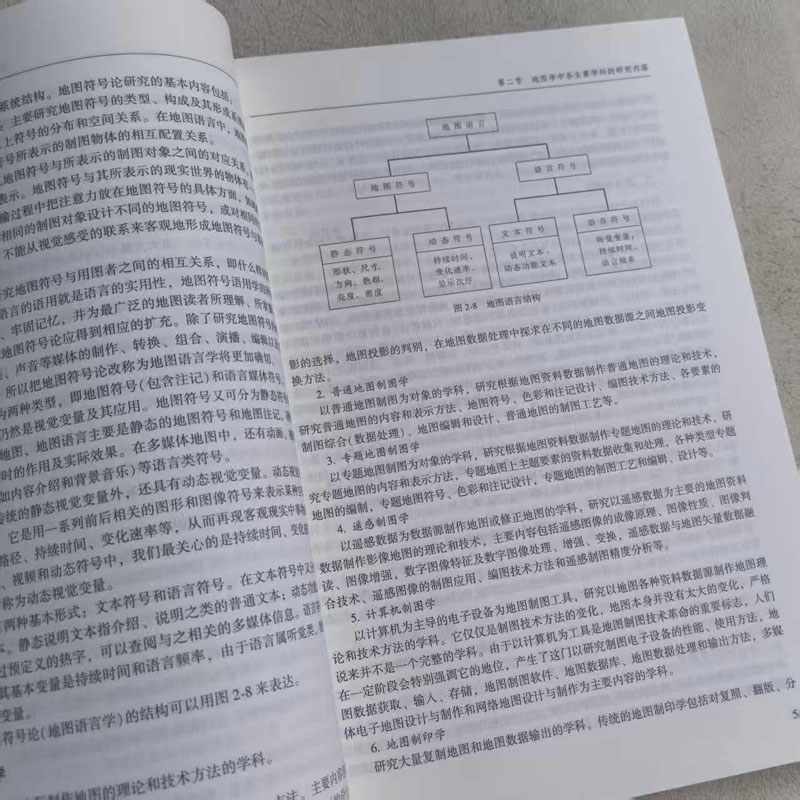 系统结构。地图符号论研究的基本内容包括:
主要研究地图符号的类型、构成及其形成系
上符号的分布和空间关系。在地图语言中,地
号所表示的制图物体的相互配置关系。
地图符号与所表示的制图对象之间的对应关系
表示。地图符号与其所表示的现实世界的物体有
输过程中把注意力放在地图符号的具体方面,如
相同的制图对象设计不同的地图符号,或对相同的
不能从视觉感受的联系来客观地形成地图符号与
究地图符号与用图者之间的相互关系,即什么样
语言的语用就是语言的实用性,地图符号语用学
、牢固记忆,并为最广泛的地图读者所理解、所掌
地图符号论应得到相应的扩充。除了研究地图符号的
、声音等媒体的制作、转换、组合、演播、编辑以
所以把地图符号论改称为地图语言学将更加确切,
为两种类型,即地图符号(包含注记)和语言媒体符号。
仍然是视觉变量及其应用。地图符号又可分为静态符
地图,地图语言主要是静态的地图符号和地图注记,
时的作用及实际效果。在多媒体地图中,还有动画、
如内容介绍和背景音乐)等语言类符号。
传统的静态视觉变量外,还具有动态视觉变量。动态
它是用一系列前后相关的图形和图像符号来表示某种
路径、持续时间、变化速率等,从而再现客观现实中
、视频和动态符号中,我们最关心的是持续时间、变化
称为动态视觉变量。
有两种基本形式:文本符号和语言符号。在文本符号中又
本。静态说明文本指介绍、说明之类的普通文本;动态
过预定义的热字,可以查阅与之相关的多媒体信息。语音
其基本变量是持续时间和语言频率,由于语言属听觉类
变量。
符号论(地图语言学)的结构可以用图2-8来表达。
制作地图的理论和技术方法的学科。
法。主要内容
第二节 地图学中各主要学科的研究内容
地图语言
地图符号 语言符号
静态符号 动态符号 文本符号 语音符号
形状、尺寸、 持续时间、 说明文本、 听觉变量:
方向、色相、 变化速率、 动态功能文本 持续时间、
亮度、密度 显示次序 语言频率
图2-8 地图语言结构
影的选择,地图投影的判别,在地图数据处理中探求在不同的地图数据面之间地图投影变
换方法。
2. 普通地图制图学
以普通地图制图为对象的学科,研究根据地图资料数据制作普通地图的理论和技术,
研究普通地图的内容和表示方法、地图符号、色彩和注记设计、编图技术方法、各要素的
制图综合(数据处理)、地图编辑和设计、普通地图的制图工艺等。
3. 专题地图制图学
以专题地图制图为对象的学科,研究根据地图资料数据制作专题地图的理论和技术,研
究专题地图的内容和表示方法,专题地图上主题要素的资料数据收集和处理,各种类型专题
地图的编制,专题地图符号、色彩和注记设计,专题地图的制图工艺和编辑、设计等。
4. 遥感制图学
以遥感数据为数据源制作地图或修正地图的学科,研究以遥感数据为主要的地图资料
数据制作影像地图的理论和技术,主要内容包括遥感图像的成像原理、图像性质、图像判
读、图像增强,数字图像特征及数字图像处理、增强、变换,遥感数据与地图矢量数据融
合技术、遥感图像的制图应用、编图技术方法和遥感制图精度分析等。
5. 计算机制图学
以计算机为主导的电子设备为地图制图工具,研究以地图各种资料数据源制作地图理
论和技术方法的学科。它仅仅是制图技术方法的变化,地图本身并没有太大的变化,严格
说来并不是一个完整的学科。由于以计算机为工具是地图制图技术革命的重要标志,人们
在一定阶段会特别强调它的地位,产生了这门以研究制图电子设备的性能、使用方法,地
图数据获取、输入、存储,地图制图软件、地图数据库、地图数据处理和输出方法,多媒
体电子地图设计与制作和网络地图设计与制作为主要内容的学科。
6. 地图制印学
研究大量复制地图和地图数据输出的学科。传统的地图制印学包括对复照、翻版、分